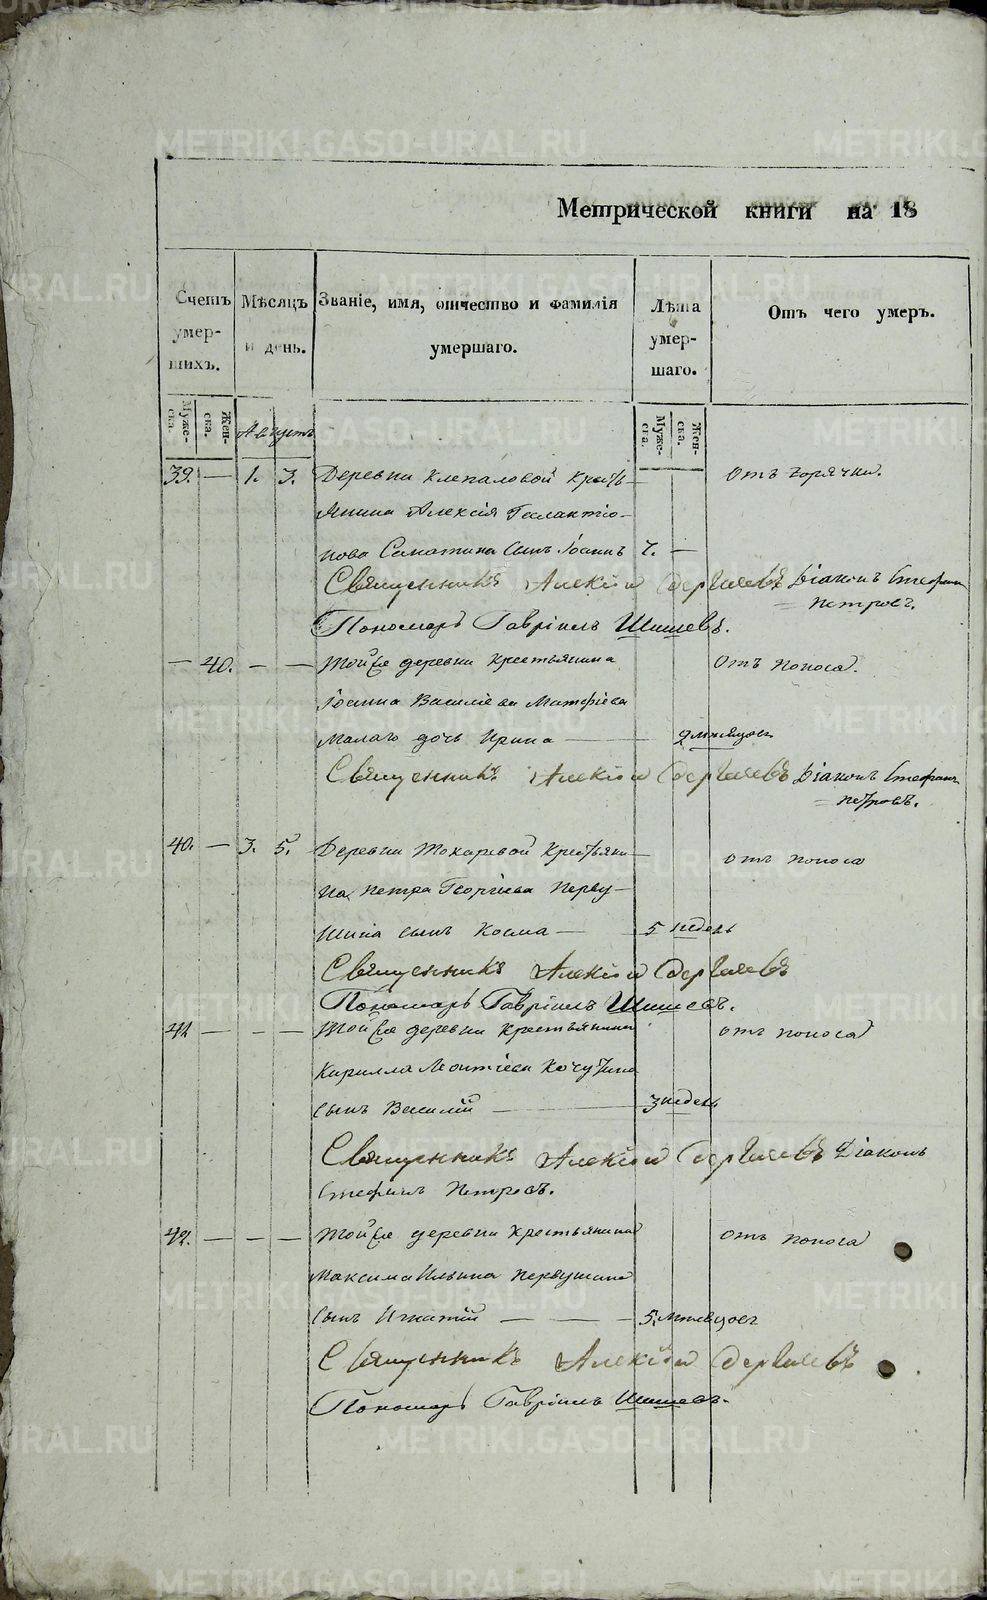 METRIKI.GASO-URAL.RU
Метрической книги на 18
Счетъ умер- шихъ.
Мѣсяцъ и день.
Званіе, имя, отчество и фамилія умершаго.
Лѣта умер- шаго.
Отъ чего умеръ.
Муже- ска. Жен- ска.
Августъ
Муже- ска. Жен- ска.
39. — 1. 3. Деревни Клепаловой кресть- отъ горячки.
янина Алексія Галактіо-
нова сынъ Іоаннъ
Священникъ Алексій Сергіевъ Діаконъ Стефанъ
Петровъ.
Пономарь Гавріилъ Шишевъ.
— 40. — — Той же деревни крестьянина отъ поноса.
Іоанна Василіева Матфіева
Малаго дочь Ирина — 9 мѣсяцовъ
Священникъ Алексій Сергіевъ Діаконъ Стефанъ
Петровъ.
40. — 3. 5. Деревни Токаревой крестьяни- отъ поноса
на Петра Георгіева Перву-
шина сынъ Косма — 5 недель
Священникъ Алексій Сергіевъ
Пономарь Гавріилъ Шишевъ.
41 — — — Той же деревни крестьянина отъ поноса
Кирилла Леонтіева
сынъ Василій — 3 недель
Священникъ Алексій Сергіевъ Діаконъ
Стефанъ Петровъ.
42. — — — Той же деревни крестьянина отъ поноса
Максима Ильина Первушина
сынъ Игнатій — 5. мѣсяцовъ
Священникъ Алексій Сергіевъ
Пономарь Гавріилъ Шишевъ.